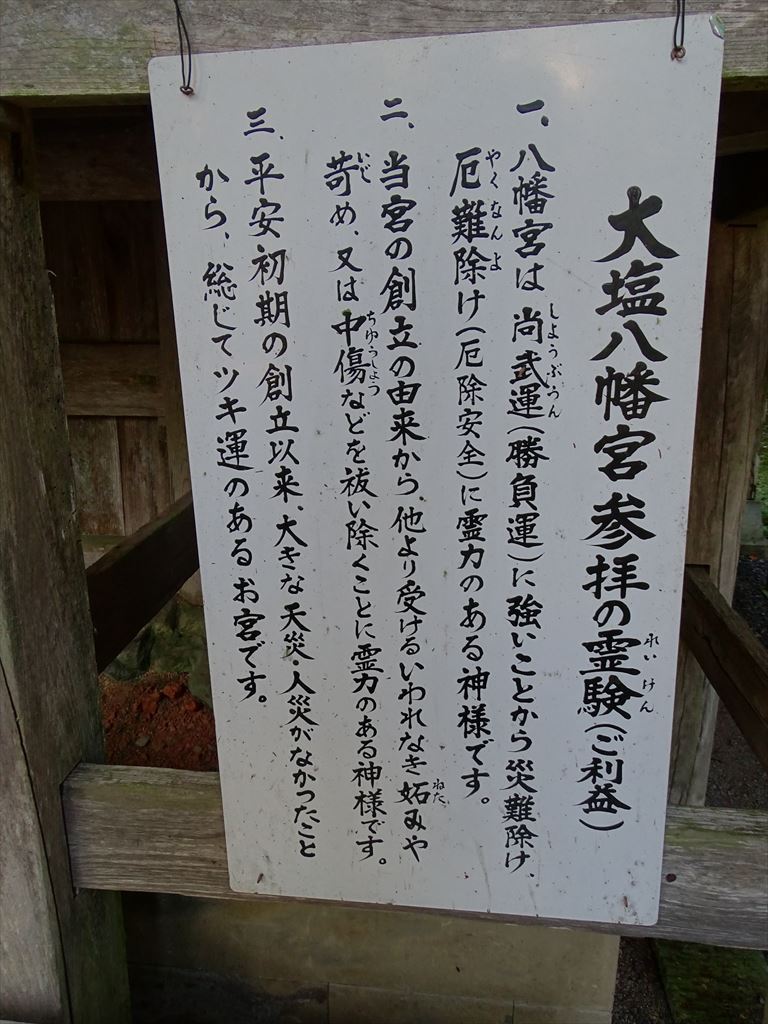 大塩八幡宮参拝の霊験(ご利益)
一、八幡宮は尚武運(勝負運)に強いことから災難除け、
厄難除け(厄除安全)に霊力のある神様です。
二、当宮の創立の由来から他より受けるいわれなき妬みや
苛め、又は中傷などを祓い除くことに霊力のある神様です。
三、平安初期の創立以来、大きな天災・人災がなかったこと
から、総じてツキ運のあるお宮です。